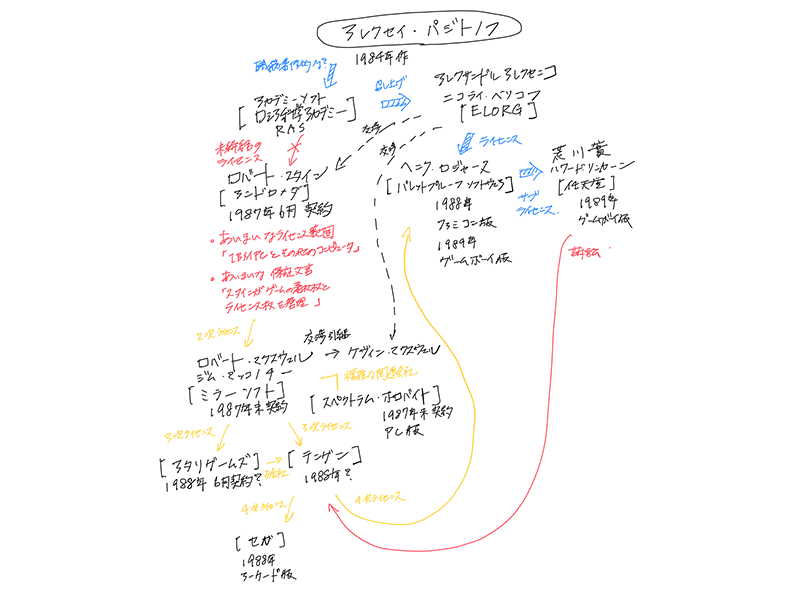 アレクセイ・パジトノフ
1984年作
アカデミーソフト
[ロシア科学アカデミー]
RAS
召し上げ
アレクサンドル アレクセンコ
ニコライ・ベリコフ
[ELORG]
交渉
交渉
ライセンス
未締結の
ライセンス
ロバート・スタイン
[アンドロメダ]
1987年6月 契約
ヘンク・ロジャース
[バレットプルーフソフトウェア]
1988年
ファミコン版
1989年
ゲームボーイ版
サブ
ライセンス
荒川實
ハワード・リンカーン
[任天堂]
1989年
ゲームボーイ版
訴訟
・あいまいなライセンス範囲
「IBM PCとその他のコンピュータ」
・あいまいな保証文言
「スタインがゲームの著作権と
ライセンス権を管理」
2次ライセンス
交渉引継
ロバート・マクスウェル
→ケヴィン・マクスウェル
ジム・マッコノチー
[ミラーソフト]
1987年末契約
複雑な関連会社
[スペクトラム・ホロバイト]
1987年末契約
PC版
3次ライセンス
3次ライセンス
[アタリゲームズ]
1988年 6月契約?
子会社
[テンゲン]
1988年?
4次ライセンス
4次ライセンス
[セガ]
1988年
アーケード版